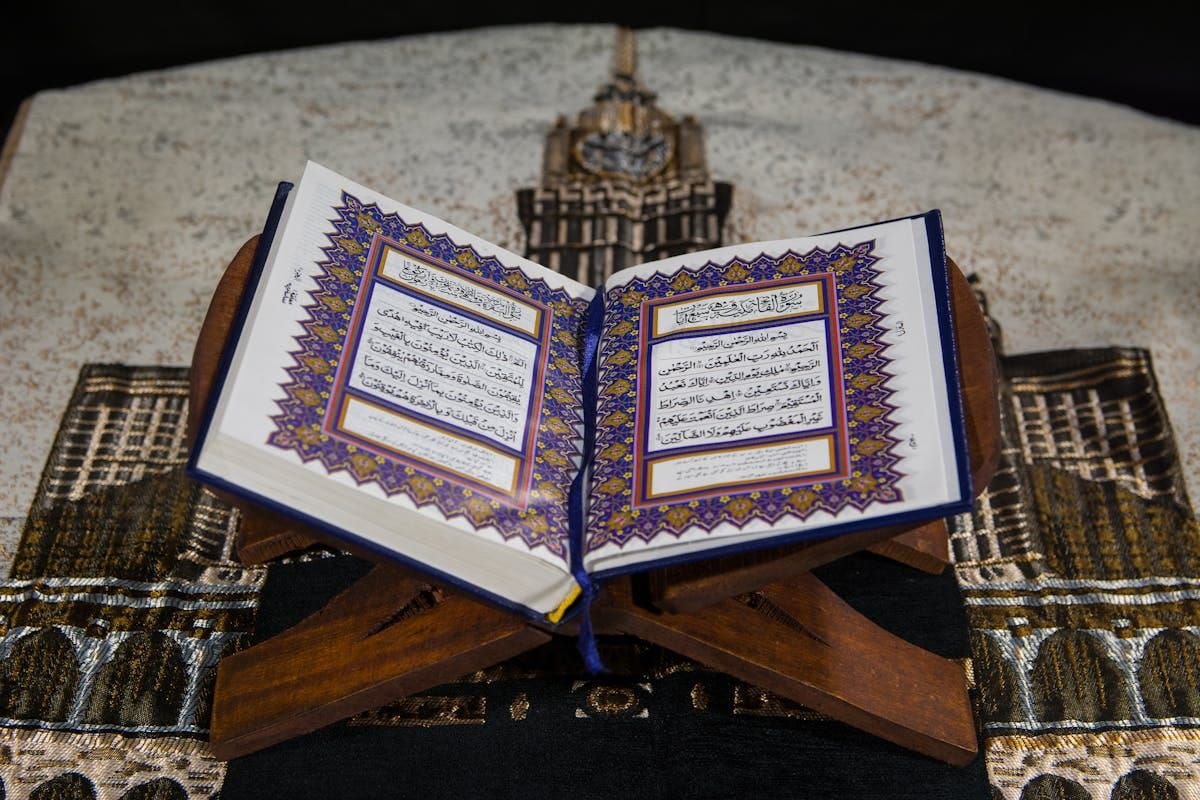 سُوْرَةُ الْفَاتِحَةِ مَكِّيَّةٌ وَّهِيَ سَبْعُ اٰيَاتٍ
بِسْمِ اللّٰهِ الرَّحْمٰنِ الرَّحِيْمِ
اَلْحَمْدُ لِلّٰهِ رَبِّ الْعٰلَمِيْنَ الرَّحْمٰنِ
الرَّحِيْمِ مٰلِكِ يَوْمِ الدِّيْنِ اِيَّاكَ نَعْبُدُ
وَاِيَّاكَ نَسْتَعِيْنُ اِهْدِنَا الصِّرَاطَ
الْمُسْتَقِيْمَ صِرَاطَ الَّذِيْنَ اَنْعَمْتَ عَلَيْهِمْ
غَيْرِ الْمَغْضُوْبِ عَلَيْهِمْ وَلَا الضَّآلِّيْنَ
بِسْمِ اللّٰهِ الرَّحْمٰنِ الرَّحِيْمِ
الٓمّٓ ذٰلِكَ الْكِتٰبُ لَا رَيْبَ فِيْهِ هُدًى
لِّلْمُتَّقِيْنَ الَّذِيْنَ يُؤْمِنُوْنَ بِالْغَيْبِ وَ
يُقِيْمُوْنَ الصَّلٰوةَ وَمِمَّا رَزَقْنٰهُمْ يُنْفِقُوْنَ
وَالَّذِيْنَ يُؤْمِنُوْنَ بِمَآ اُنْزِلَ اِلَيْكَ وَمَآ
اُنْزِلَ مِنْ قَبْلِكَ وَبِالْاٰخِرَةِ هُمْ يُوْقِنُوْنَ